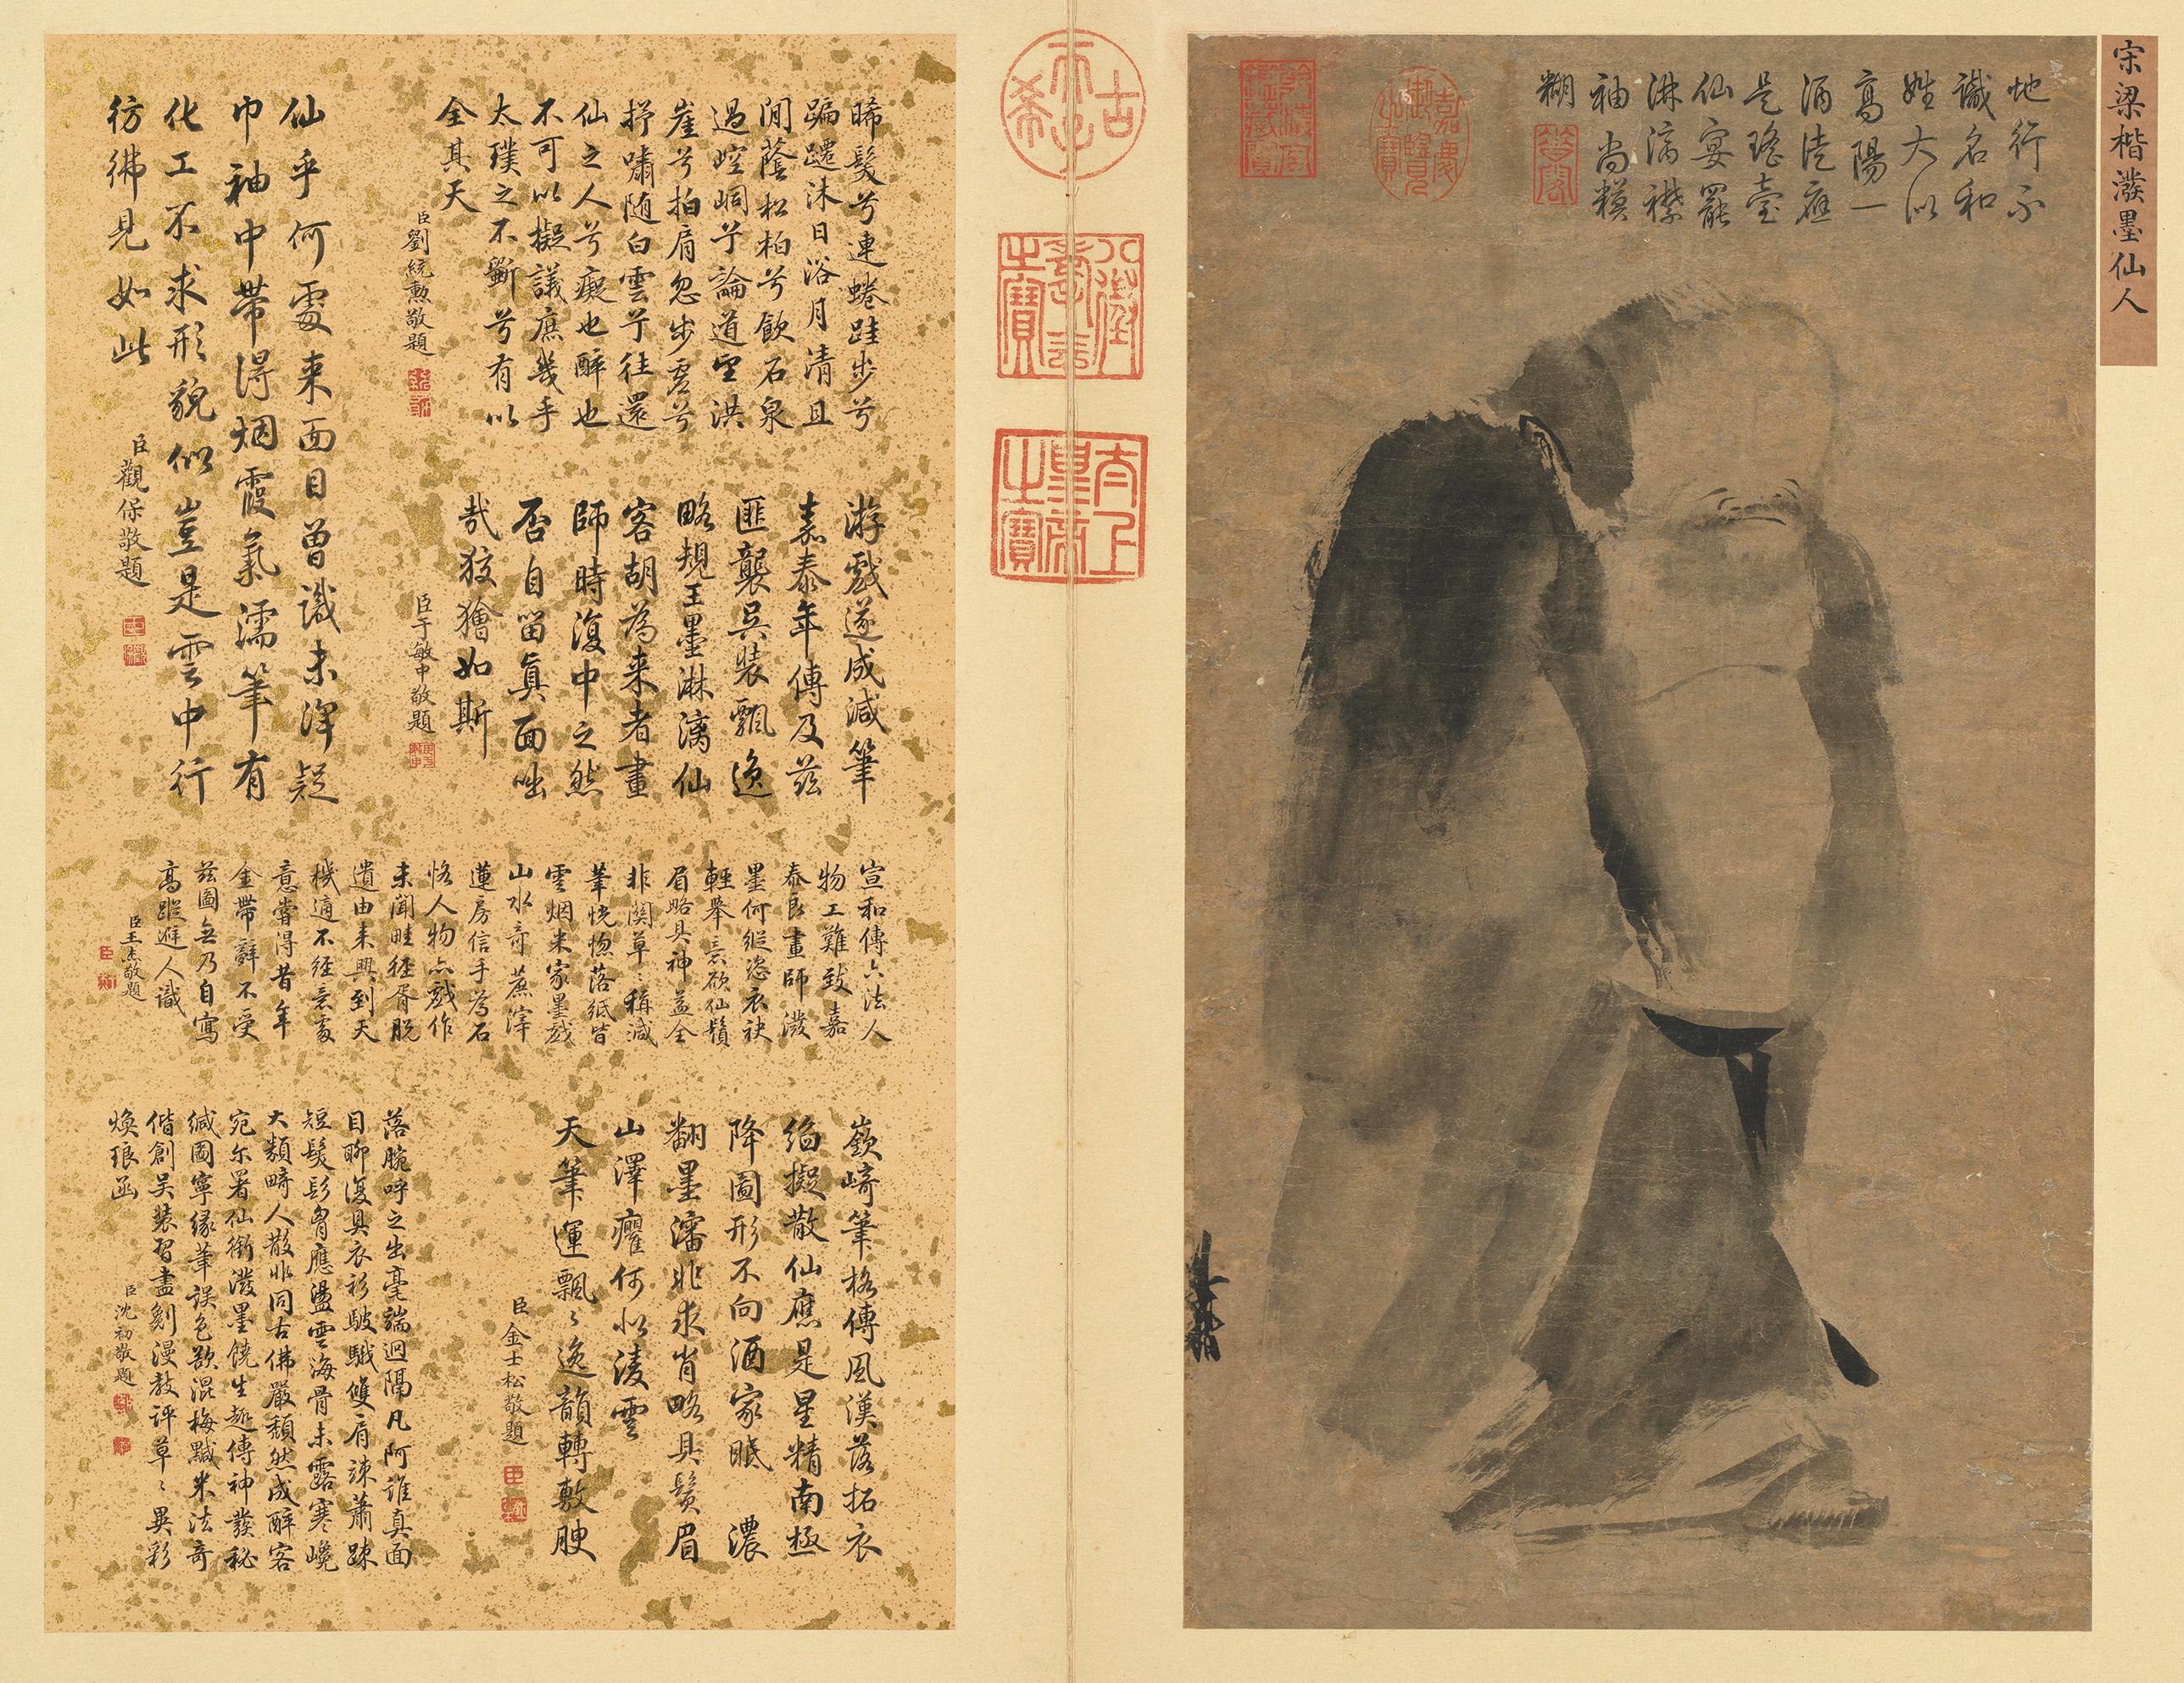 宋梁楷潑墨仙人
地行不
識名和
姓大似
高陽一
酒徒應
是瑤臺
仙宴罷
淋漓襟
袖尚模
糊
古希天子
八徵耄念之寶
太上皇帝之寶
嘉慶御覽之寶
晞髮兮連蜷跬步兮
蹁躚沐日浴月清且
閒蔭松柏兮飲石泉
過崆峒兮論道望洪
崖兮拍肩忽步虛兮
抒嘯随白雲兮往還
仙之人兮癡也醉也
不可以擬議庶幾乎
太璞之不斲兮有以
全其天
臣劉統勲敬題
游戲遂成減筆
嘉泰年傳及茲
匪襲吳裝飄逸
略規王墨淋漓仙
客胡為来者畫
師時復中之然
否自留真面咄
哉狡獪如斯
臣于敏中敬題
仙乎何處来面目曾識未渾疑
巾袖中帶得烟霞氣濡筆有
化工不求形貌似豈是雲中行
彷彿見如此
臣觀保敬題
宣和傳六法人
物工難致嘉
泰良畫師潑
墨何縱恣衣袂
輕舉意欲仙鬚
眉略具神益全
非関草〻稱減
筆恍惚落紙皆
雲烟米家墨戲
山水奇蕉滓
蓮房信手為石
恪人物亦戲作
未聞畦徑胥脫
遺由来興到天
機適不經意處
意嘗得昔年
金帶辭不受
茲圖無乃自寫
高蹤遊人識
臣王杰敬題
嶔崎筆格傳風漢落拓衣
絛擬散仙應是星精南極
降圖形不向酒家眠 濃
翻墨瀋非求肖略具鬚眉
山澤癯何必淩雲
天筆運飄〻逸韻轉敷腴
臣金士松敬題
落腕呼之出毫端迥隔凡阿誰真面
目聊復具衣衫駊騀雙肩竦蕭疎
短髮髟胷應盪雲海骨未露寒巉
大類畸人散非同古佛嚴頹然成醉客
宛尔署仙銜潑墨饒生趣傳神發秘
緘圖寧緣筆誤色欲混梅黬米法奇
偕創吴裝習盡劖漫教評草〻異彩
煥琅函
臣沈初敬題